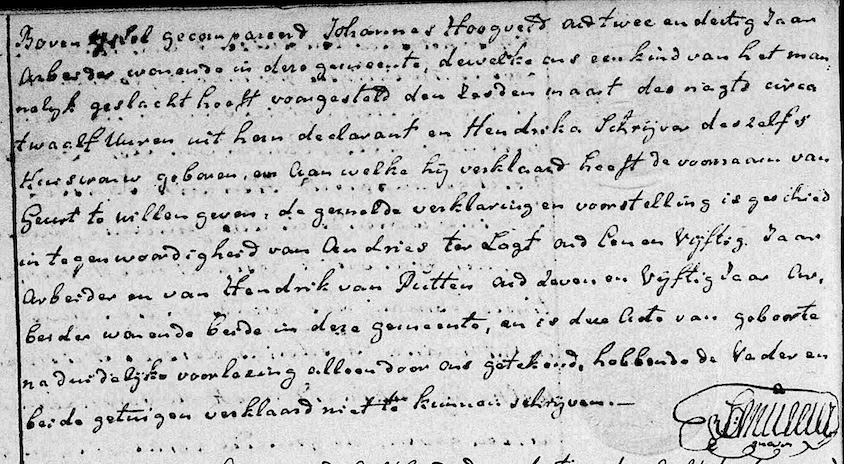 Boven Ysel gecompareerd Johannes Hoogveld oud twee en dertig Jaar
Arbeider, wonende in deze gemeente, dewelke ons een kind van het man-
nelyk geslacht heeft voorgesteld den Zesden maart des nagts circa
twaalf Uuren uit hem declarant en Hendrika Schrijver deszelfs
Huisvrouw geboren, en aan welke hij verklaard heeft de voornaam van
Geurt te willen geven; de gemelde verklaring en voorstelling is geschied
in tegenwoordigheid van Andries ter Lagt oud Een en Vijftig Jaar
Arbeider en van Hendrik van Putten oud Zeven en Vijftig Jaar Ar-
beider wonende beide in deze gemeente, en is deze Acte van geboorte
na duidelyke voorlezing alleen door ons getekend, hebbende de Vader en
beide getuigen verklaard niet te kunnen schrijven.—